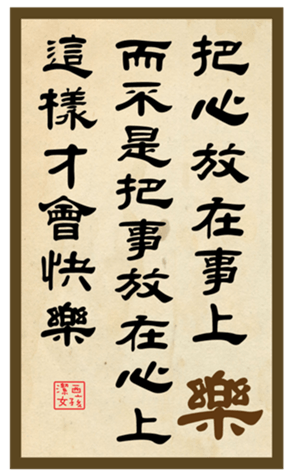 把心放在事上
樂
而不是把事放在心上
這樣才會快樂